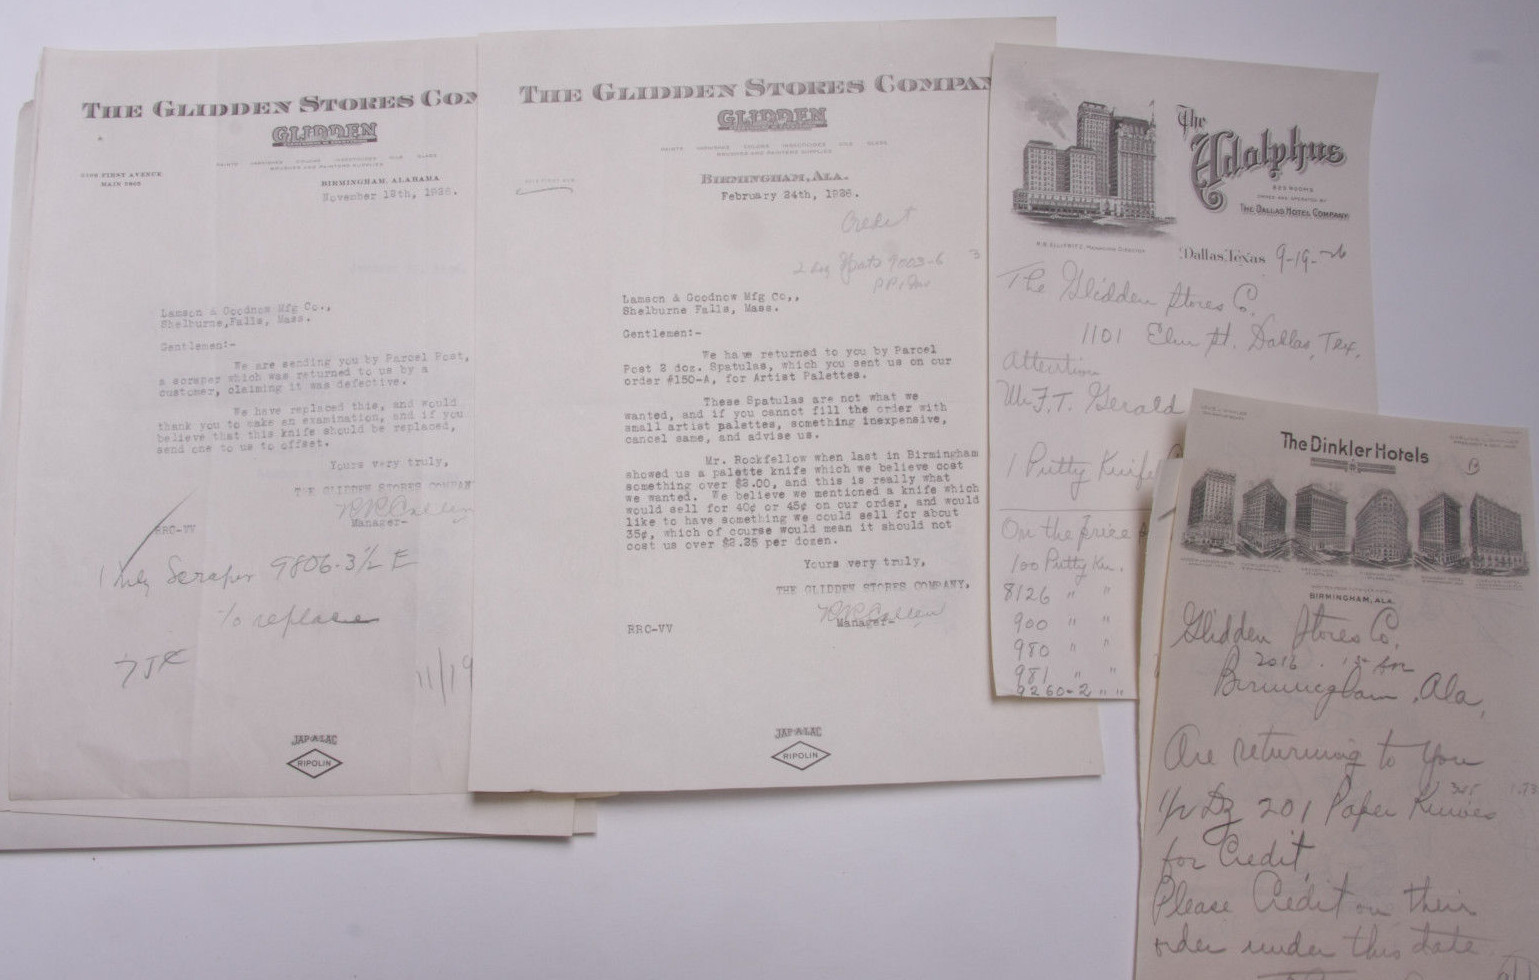 THE GLIDDEN STORES COM
GLIDDEN
PAINTS VARNISHES COLORS INSECTICIDES OILS GLASS
BRUSHES AND PAINTERS SUPPLIES
FIRST AVENUE
MAIN
BIRMINGHAM, ALABAMA
November 18th, 1926.
Lamson & Goodnow Mfg Co.,
Shelburne,Falls, Mass.
Gentlemen:-
We are sending you by Parcel Post,
a scraper which was returned to us by a
customer, claiming it was defective.
We have replaced this, and would
thank you to make an examination, and if you
believe that this knife should be replaced,
send one to us to offset.
Yours very truly,
THE GLIDDEN STORES COMPANY
Manager-
RRC-VV
1 only Scraper 9806-3½ E
To replace
11/19
JAP-A-LAC
RIPOLIN
THE GLIDDEN STORES COMPAN
GLIDDEN
PAINTS VARNISHES COLORS INSECTICIDES OILS GLASS
BRUSHES AND PAINTERS SUPPLIES
BIRMINGHAM, ALA.
February 24th, 1926.
Credit
2 doz Spats 9003-6
Lamson & Goodnow Mfg Co,,
Shelburne Falls, Mass.
Gentlemen:-
We have returned to you by Parcel
Post 2 doz. Spatulas, which you sent us on our
order #150-A, for Artist Palettes.
These Spatulas are not what we
wanted, and if you cannot fill the order with
small artist palettes, something inexpensive,
cancel same, and advise us.
Mr. Rockfellow when last in Birmingham
showed us a palette knife which we believe cost
something over $2.00, and this is really what
we wanted. We believe we mentioned a knife which
would sell for 40¢ or 45¢ on our order, and would
like to have something we could sell for about
35¢, which of course would mean it should not
cost us over $2.25 per dozen.
Yours very truly,
THE GLIDDEN STORES COMPANY.
Manager-
RRC-VV
JAP-A-LAC
RIPOLIN
The Adolphus
ROOMS
OWNED AND OPERATED BY
THE DALLAS HOTEL COMPANY
Dallas, Texas 9-19-26
The Glidden Stores Co.
1101 Elm St. Dallas, Tex.
Attention
Mr F. T. Gerald
1 Putty Knife
On the price
100 Putty Kn.
8126 " "
900 " "
980 " "
981 " "
9260-2 " "
The Dinkler Hotels
B
BIRMINGHAM, ALA.
Glidden Stores Co.
2016
Birmingham, Ala,
Are returning to you
1/2 Dz 201 Paper Knives
for Credit,
Please Credit on their
order under this date